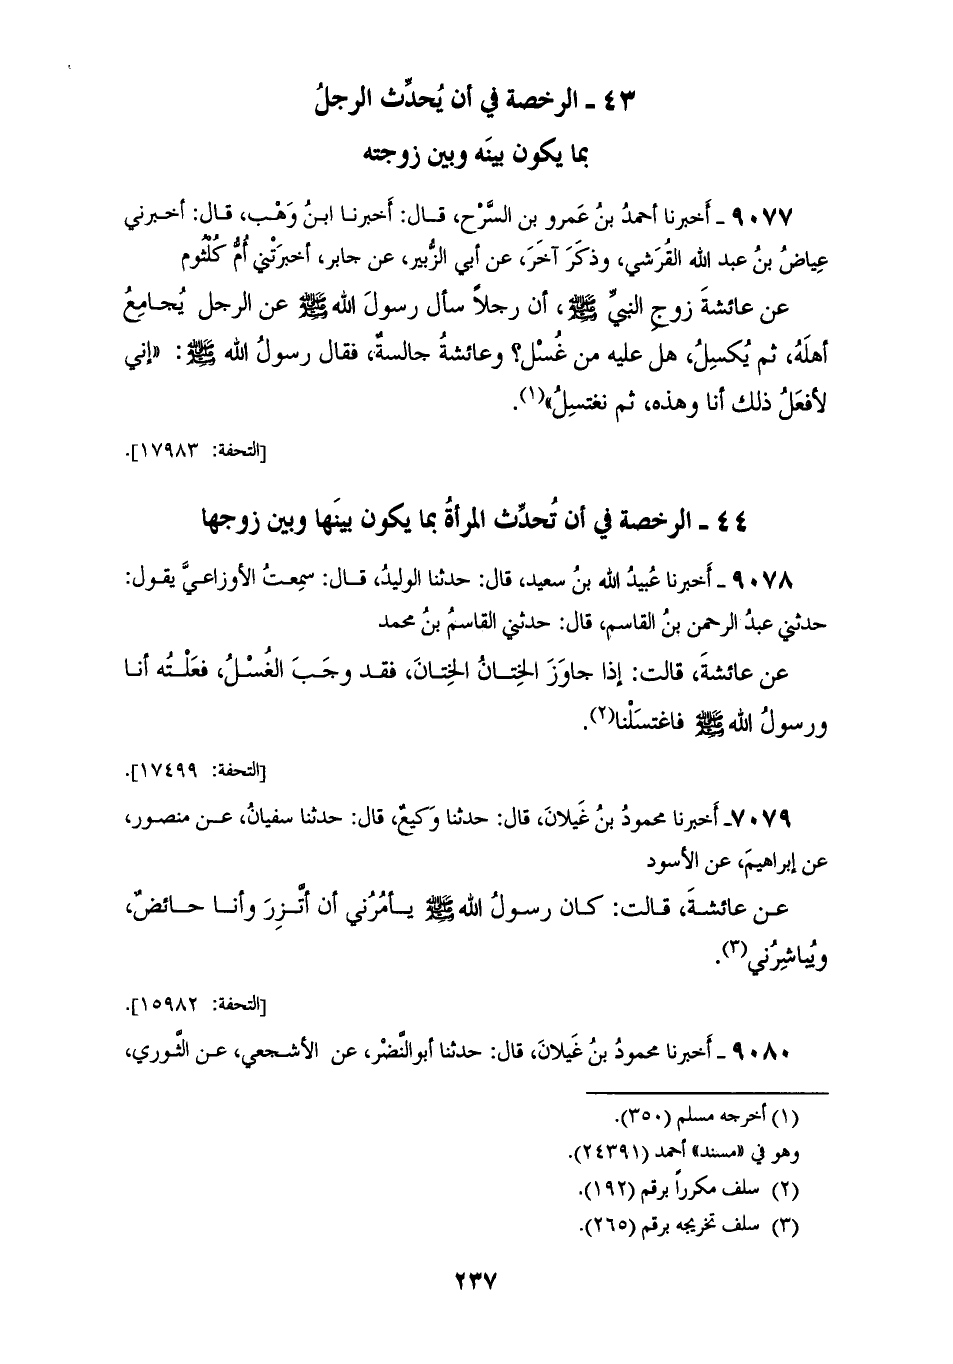 ٤٣ ـ الرخصة في أن يُحدِّث الرجلُ
بما يكون بينَه وبين زوجته
٩٠٧٧ ـ أَخبرنا أحمدُ بنُ عَمرو بن السَّرْح، قـال: أَخبرنـا ابـنُ وَهْـب، قـال: أخـبرني
عِياضُ بنُ عبد الله القُرَشي، وذكَرَ آخَرَ، عن أبي الزُّبير، عن جابر، أخبرَتْني أُمُّ كُلْثُوم
عن عائشةَ زوجِ النبيِّ ﷺ، أن رجلاً سأل رسولَ الله ﷺ عن الرجل يُجـامِعُ
أهلَهُ، ثم يُكسِلُ، هل عليه من غُسْل؟ وعائشةُ جالسةٌ، فقال رسولُ الله ﷺ: «إني
لأفعَلُ ذلك أنا وهذه، ثم نغتسِلُ»(١).
[التحفة: ١٧٩٨٣].
٤٤ ـ الرخصة في أن تُحدِّث المرأةُ بما يكون بينَها وبين زوجها
٩٠٧٨ ـ أَخبرنا عُبيدُ الله بنُ سعيد، قال: حدثنا الوليدُ، قـال: سمِعـتُ الأوزاعـيَّ يقـول:
حدثني عبدُ الرحمن بنُ القاسم، قال: حدثني القاسمُ بنُ محمد
عن عائشةَ، قالت: إذا جاوَزَ الخِتـانُ الخِتـانَ، فقـد وجَـبَ الغُسْـلُ، فعَلْـتُه أنـا
ورسولُ الله ﷺ فاغتسَلْنا(٢).
[التحفة: ١٧٤٩٩].
٧٠٧٩ـ أَخبرنا محمودُ بنُ غَيلانَ، قال: حدثنا وَكيعٌ، قال: حدثنا سفيانُ، عـن منصـور،
عن إبراهيمَ، عن الأسود
عـن عائشـةَ، قـالت: كـان رسـولُ الله ﷺ يـأمُرُني أن أتَّـزِرَ وأنـا حـائضٌ،
ويُباشِرُني(٣).
[التحفة: ١٥٩٨٢].
٩٠٨٠ ـ أَخبرنا محمودُ بنُ غَيلانَ، قال: حدثنا أبوالنَّضْر، عن الأشـجعي، عـن الثَّـوري،
(١) أخرجه مسلم (٣٥٠).
وهو في «مسند» أحمد (٢٤٣٩١).
(٢) سلف مكرراً برقم (١٩٢).
(٣) سلف تخريجه برقم (٢٦٥).
٢٣٧